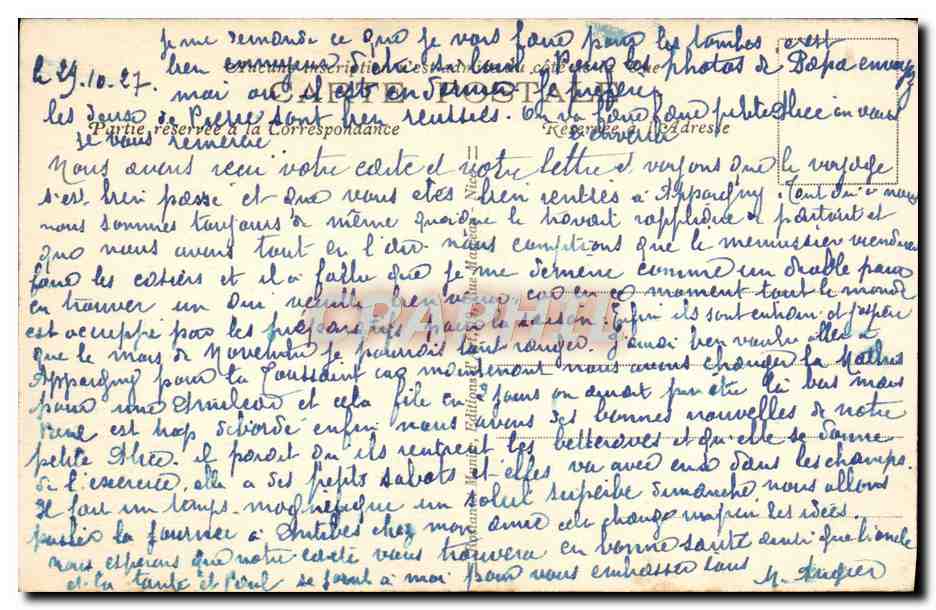 Je me demande ce que je vais faire pour les tombes. c'est
le 29.10.27. bien ennuyeux d'être si loin. Pour les photos de Papa envoyez
Aucune inscription n'est admise du côté de la vue
moi où il est en dernier je préfère
CARTE POSTALE
les deux de Pierre sont bien réussies. On va faire faire petite Alice on vous
Partie réservée à la Correspondance
Réservée à l'Adresse
je vous remercie
l'enverra
Nous avons reçu votre carte et votre lettre et voyons que le voyage
s'est bien passé et que vous êtes bien rentrés à Appoigny. Tant qu'à nous
nous sommes toujours de même quoique le travail rapplique de partout et
que nous avons tout en l'air. nous comptions que le menuisier viendrait
faire les casiers et il a fallu que je me démène comme un diable pour
en trouver un qui veuille bien venir car en ce moment tout le monde
est occupé par les préparatifs pour la saison. Enfin ils sont en train et j'espère
que le mois de Novembre je pourrais tout ranger. J'aurai bien voulu aller à
Appoigny pour la Toussaint car maintenant nous avons changer la Mathis
pour une Amilcar et cela file en 2 jours on aurait pu être là bas mais
René est trop débordé enfin nous avons des bonnes nouvelles de notre
petite Alice. il parait qu'ils rentrent les betteraves et qu'elle se donne
de l'exercice, elle a des petits sabots et elle va avec eux dans les champs.
Il fait un temps magnifique un soleil superbe dimanche nous allons
passer la journée à Antibes chez mon amie cela change un peu les idées.
nous espérons que notre carte vous trouvera en bonne santé ainsi que l'oncle
et la tante et Paul se joint à moi pour vous embrasser tous
CARPELI